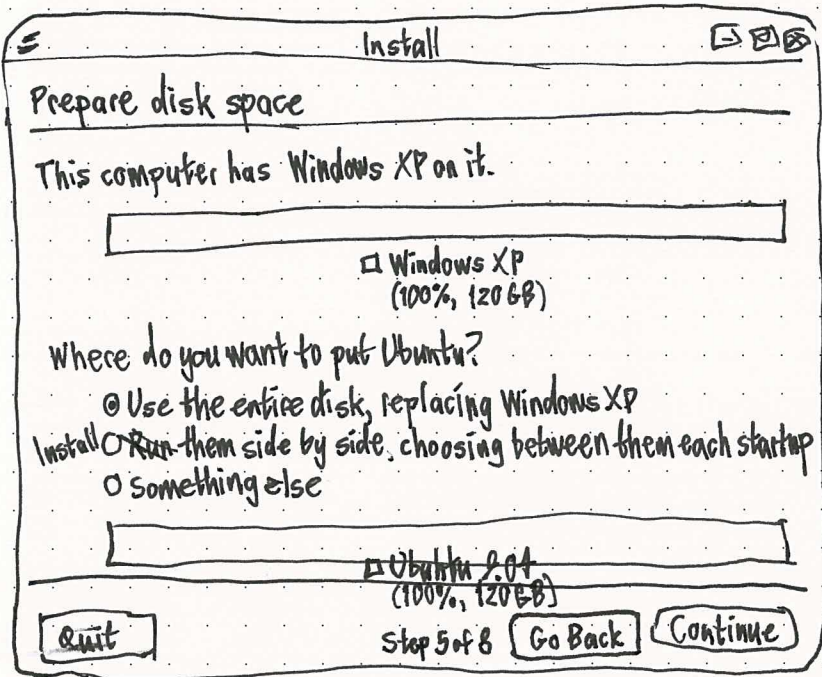 Install
Prepare disk space
This computer has Windows XP on it.
Windows XP
(100%, 120 GB)
Where do you want to put Ubuntu?
Use the entire disk, replacing Windows XP
Install Run them side by side, choosing between them each startup
Something else
Ubuntu 9.04
(100%, 120 GB)
Quit Step 5 of 8 Go Back Continue